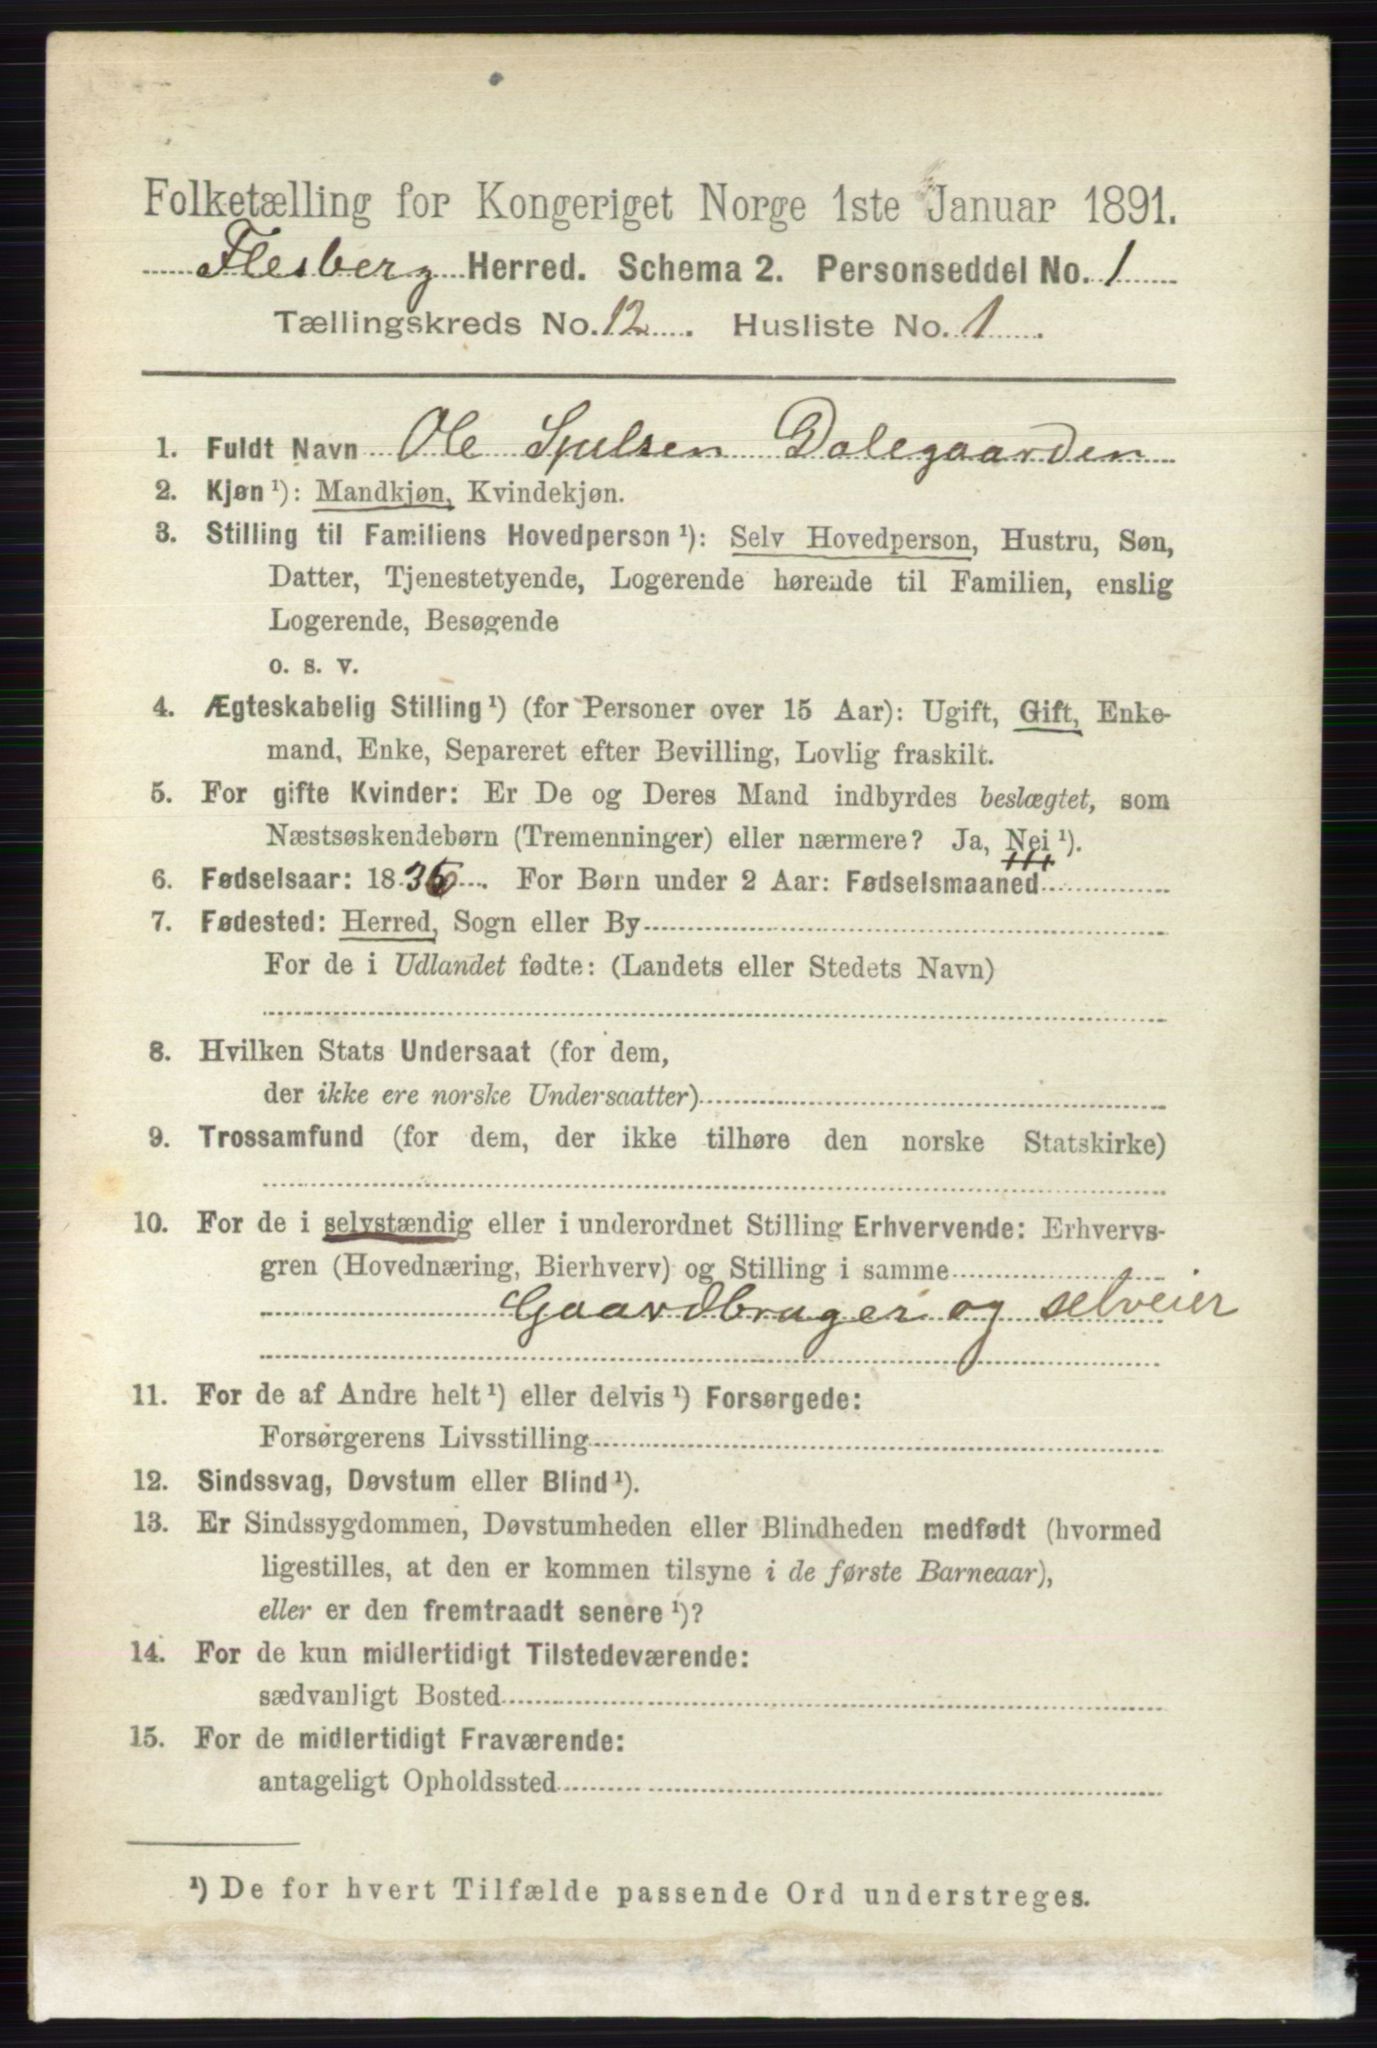 Folketælling for Kongeriget Norge 1ste Januar 1891.
Flesberg Herred. Schema 2. Personseddel No. 1
Tællingskreds No. 12. Husliste No. 1.
1. Fuldt Navn Ole Sjulsen Dalegaarden
2. Kjøn ¹): Mandkjøn, Kvindekjøn.
3. Stilling til Familiens Hovedperson ¹): Selv Hovedperson, Hustru, Søn,
Datter, Tjenestetyende, Logerende hørende til Familien, enslig
Logerende, Besøgende
o. s. v.
4. Ægteskabelig Stilling ¹) (for Personer over 15 Aar): Ugift, Gift, Enke-
mand, Enke, Separeret efter Bevilling, Lovlig fraskilt.
5. For gifte Kvinder: Er De og Deres Mand indbyrdes beslægtet, som
Næstsøskendebørn (Tremenninger) eller nærmere? Ja, Nei ¹).
6. Fødselsaar: 18. For Børn under 2 Aar: Fødselsmaaned
7. Fødested: Herred, Sogn eller By
For de i Udlandet fødte: (Landets eller Stedets Navn)
8. Hvilken Stats Undersaat (for dem,
der ikke ere norske Undersaatter)
9. Trossamfund (for dem, der ikke tilhøre den norske Statskirke)
10. For de i selvstændig eller i underordnet Stilling Erhvervende: Erhvervs-
gren (Hovednæring, Bierhverv) og Stilling i samme
Gaardbruger og selveier
11. For de af Andre helt ¹) eller delvis ¹) Forsørgede:
Forsørgerens Livsstilling
12. Sindssvag, Døvstum eller Blind ¹).
13. Er Sindssygdommen, Døvstumheden eller Blindheden medfødt (hvormed
ligestilles, at den er kommen tilsyne i de første Barneaar),
eller er den fremtraadt senere ¹)?
14. For de kun midlertidigt Tilstedeværende:
sædvanligt Bosted
15. For de midlertidigt Fraværende:
antageligt Opholdssted
¹) De for hvert Tilfælde passende Ord understreges.